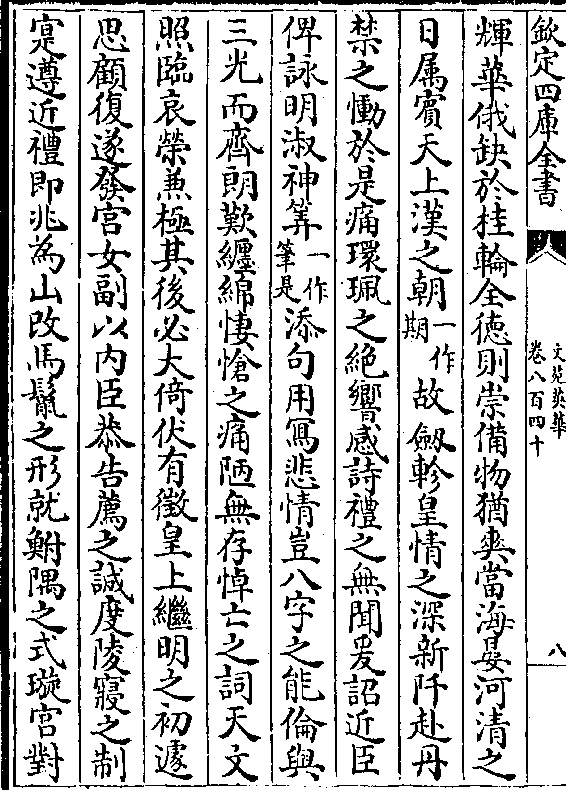 欽定四庫全書
文苑英華
卷八百四十
八
輝華俄缺於桂輪全徳則崇備物猶爽當海晏河清之
日属賔天上漢之朝一作期故劔軫皇情之深新阡赴丹
禁之慟於是痛環珮之絶響感詩禮之無聞爰詔近臣
俾詠明淑神筭一作筆是添句用冩悲情豈八字之能倫與
三光而齊朗歎纒綿悽愴之痛陋無存悼亡之詞天文
照臨哀榮兼極其後必大倚伏有徵皇上繼明之初遽
思顧復遂發宫女副以内臣恭告薦之誠度陵寢之制
寔遵近禮即兆為山改馬鬛之形就鮒隅之式璇宫對